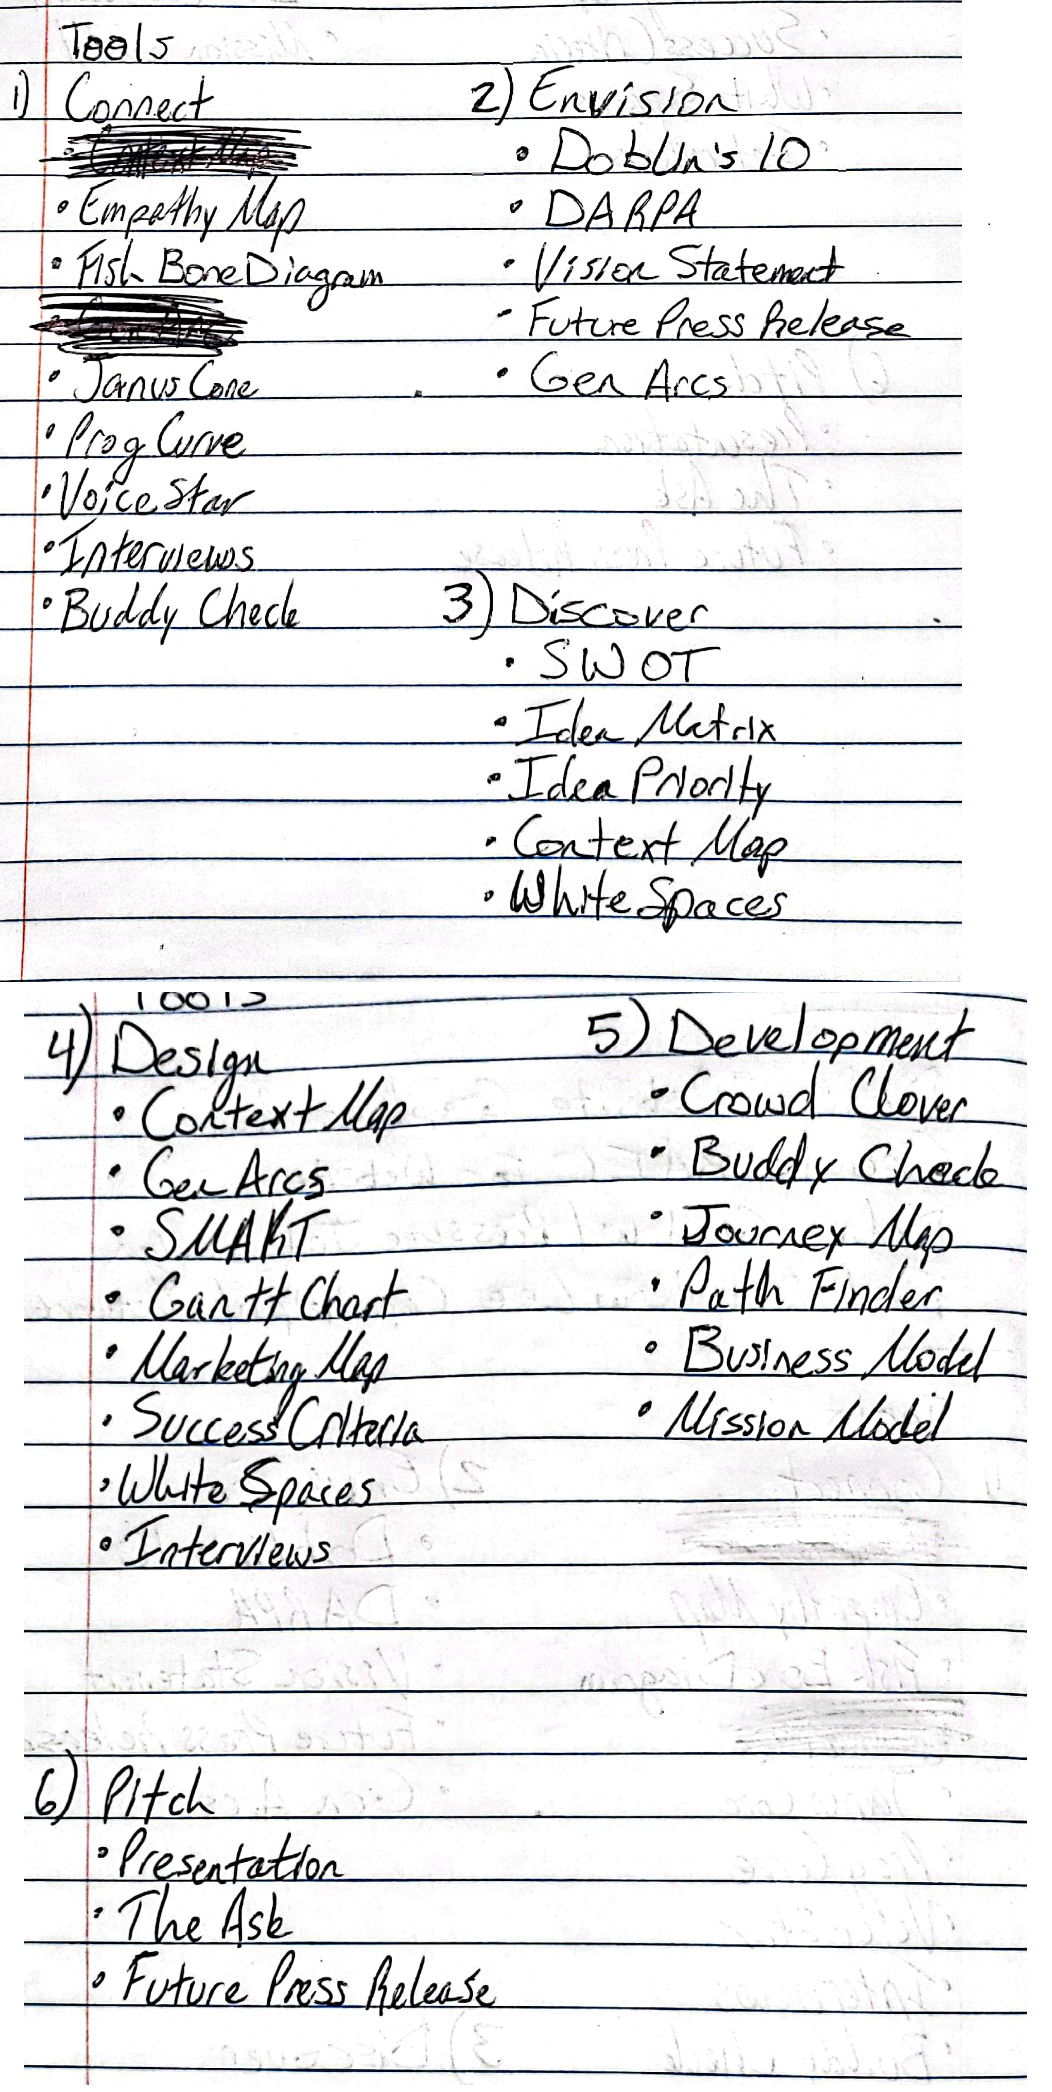 Tools
1) Connect
• Empathy Map
• Fish Bone Diagram
• Janus Cone
• Prog Curve
• Voice Star
• Interviews
• Buddy Check
2) Envision
• Doblin's 10
• DARPA
• Vision Statement
• Future Press Release
• Gen Arcs
3) Discover
• SWOT
• Idea Matrix
• Idea Priority
• Context Map
• White Spaces
Tools
4) Design
• Context Map
• Gen Arcs
• SMART
• Gantt Chart
• Marketing Map
• Success Criteria
• White Spaces
• Interviews
5) Development
• Crowd Clover
• Buddy Check
• Journey Map
• Path Finder
• Business Model
• Mission Model
6) Pitch
• Presentation
• The Ask
• Future Press Release